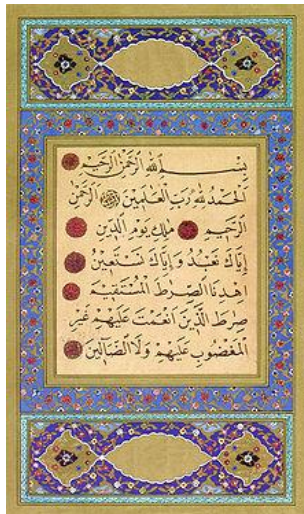 بِسْمِ اللهِ الرَّحْمٰنِ الرَّحِيمِ
اَلْحَمْدُ لِلّٰهِ رَبِّ الْعَالَمِينَ الرَّحْمٰنِ
الرَّحِيمِ مٰلِكِ يَوْمِ الدِّينِ
اِيَّاكَ نَعْبُدُ وَاِيَّاكَ نَسْتَعِينُ
اِهْدِنَا الصِّرَاطَ الْمُسْتَقِيمَ
صِرَاطَ الَّذِينَ اَنْعَمْتَ عَلَيْهِمْ غَيْرِ
الْمَغْضُوبِ عَلَيْهِمْ وَلَا الضَّآلِّينَ